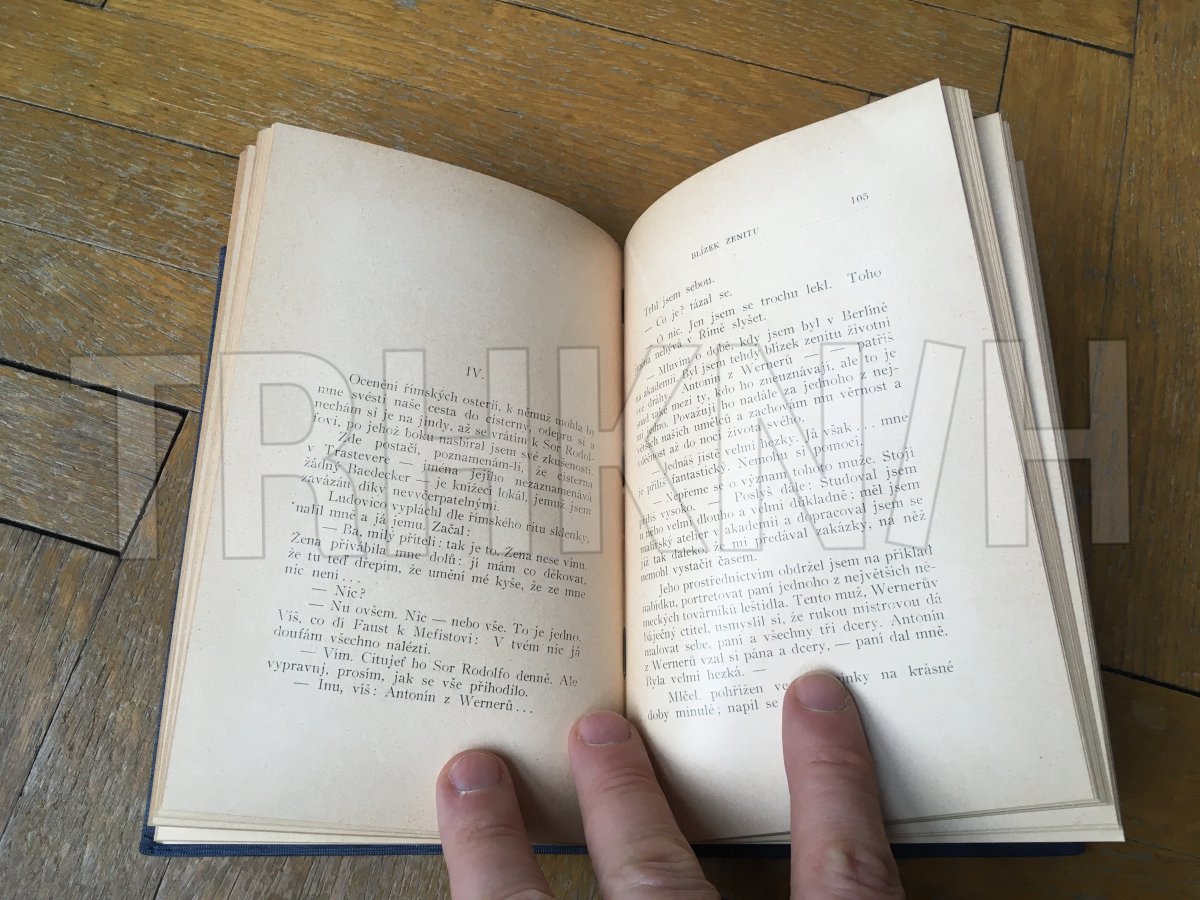 IV.
Ocenění římských osterií, k němuž mohla by
mne svésti naše cesta do cisterny, odepru si a
nechám si je na jindy, až se vrátím k Sor Rodol-
fovi, po jehož boku nasbíral jsem své zkušenosti.
Zde postačí, poznamenám-li, že cisterna
v Trastevere — jména jejího nezaznamenává
žádný Baedecker — je knížecí lokál, jemuž jsem
zavázán díky nevyčerpatelnými.
Ludovico vypláchl dle římského ritu sklenky,
nalil mně a já jemu. Začal:
— Ba, milý příteli: tak je to. Žena nese vinu.
Žena přivábila mne dolů: jí mám co děkovat,
že tu teď dřepím, že umění mé kyše, že ze mne
nic není...
— Nic?
— Nu ovšem. Nic — nebo vše. To je jedno.
Víš, co dí Faust k Mefistovi: V tvém nic já
doufám všechno nalézti.
— Vím. Citujeť ho Sor Rodolfo denně. Ale
vypravuj, prosím, jak se vše přihodilo.
— Inu, víš: Antonín z Wernerů...
105
BLÍZEK ZENITU
Trhl jsem sebou.
— Co je? tázal se.
— O nic. Jen jsem se trochu lekl. Toho
jména nebývá v Římě slyšet.
— Mluvím o době, kdy jsem byl v Berlíně
na akademii. Byl jsem tehdy blízek zenitu životní
své dráhy. Antonín z Wernerů — — patříš
snad také mezi ty, kdo ho zneuznávají, ale to je
mi jedno. Považuji ho nadále za jednoho z nej-
větších našich umělců a zachovám mu věrnost a
vděčnost až do noci života svého.
— Jednáš jistě velmi hezky. Já však... mne
je příliš fantastický. Nemohu si pomoci.
— Nepřeme se o význam tohoto muže. Stojí
příliš vysoko. — Poslyš dále: Studoval jsem
u něho velmi dlouho a velmi důkladně; měl jsem
malířský atelier v akademii a dopracoval jsem se
již tak daleko, že mi předával zakázky, na něž
nemohl vystačit časem.
Jeho prostřednictvím obdržel jsem na příklad
nabídku, portretovat paní jednoho z největších ně-
meckých továrníků leštidla. Tento muž, Wernerův
báječný ctitel, usmyslil si, že rukou mistrovou dá
malovat sebe, paní a všechny tři dcery. Antonín
z Wernerů vzal si pána a dcery, — paní dal mně.
Byla velmi hezká. —
Mlčel, pohřížen ve na krásné
doby minulé; napil se
TRHKNIH